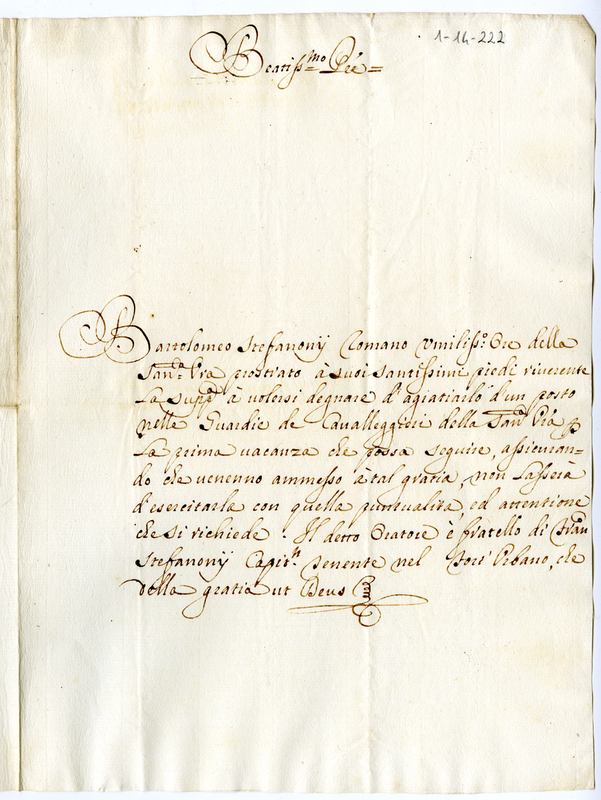 1-14-222
Beatiss.mo Pre=
Bartolomeo Stefanonij Romano Vmiliss.o Ore della
San.a Vra prostrato à suoi santissimi piedi riverente
La supp.a à volersi degnare d'agratiarlo d'un posto
nelle Guardie de Cavalleggieri della San.a Vra p
La prima vacanza che possa seguire, assicuran=
do che venenno ammesso à tal gratia, non lasserà
d'esercitarla con quella puntualità, ed attentione
che si richiede. Il detto Oratore è fratello di Fran
Stefanonij Capit.n Tenente nel Fort' Vrbano, che
della gratia ut Deus